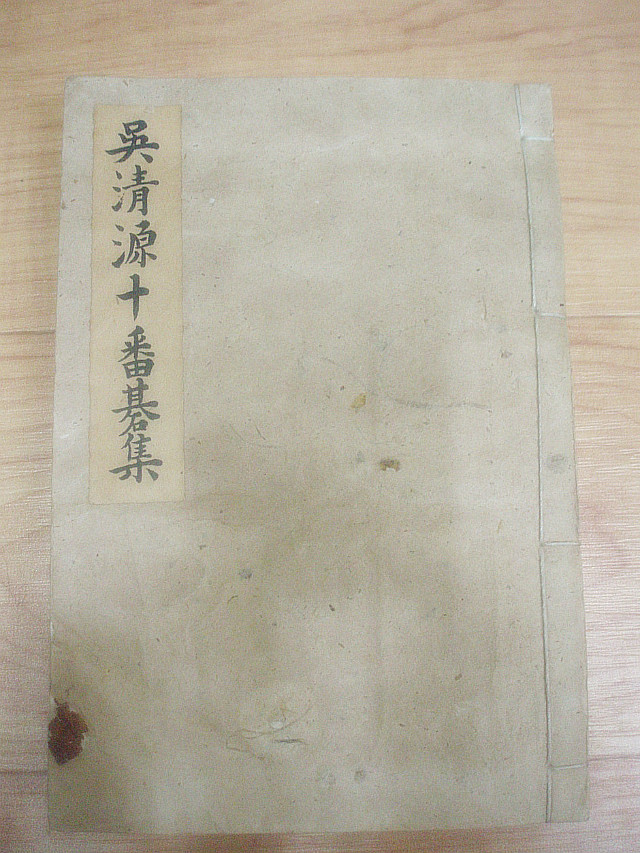 吳清源十番碁集